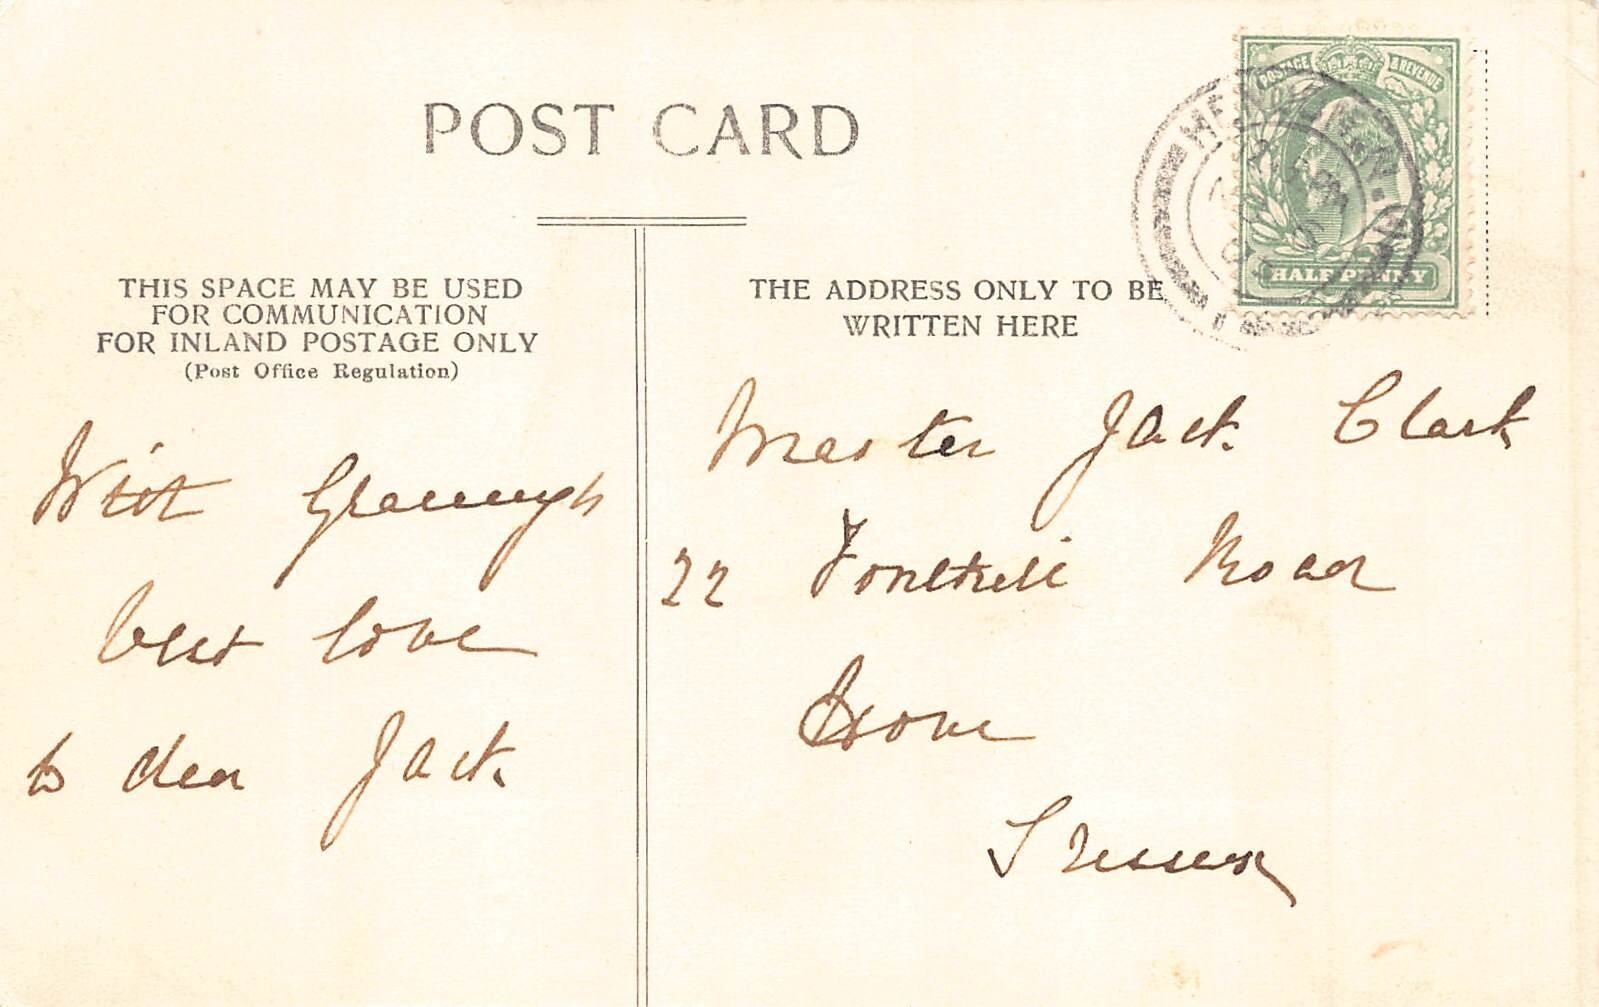 POST CARD
THIS SPACE MAY BE USED
FOR COMMUNICATION
FOR INLAND POSTAGE ONLY
(Post Office Regulation)
With Granny's
best love
to dear Jack
THE ADDRESS ONLY TO BE
WRITTEN HERE
Master Jack Clark
22 Fonthill Road
Hove
Sussex
POSTAGE & REVENUE
HALFPENNY